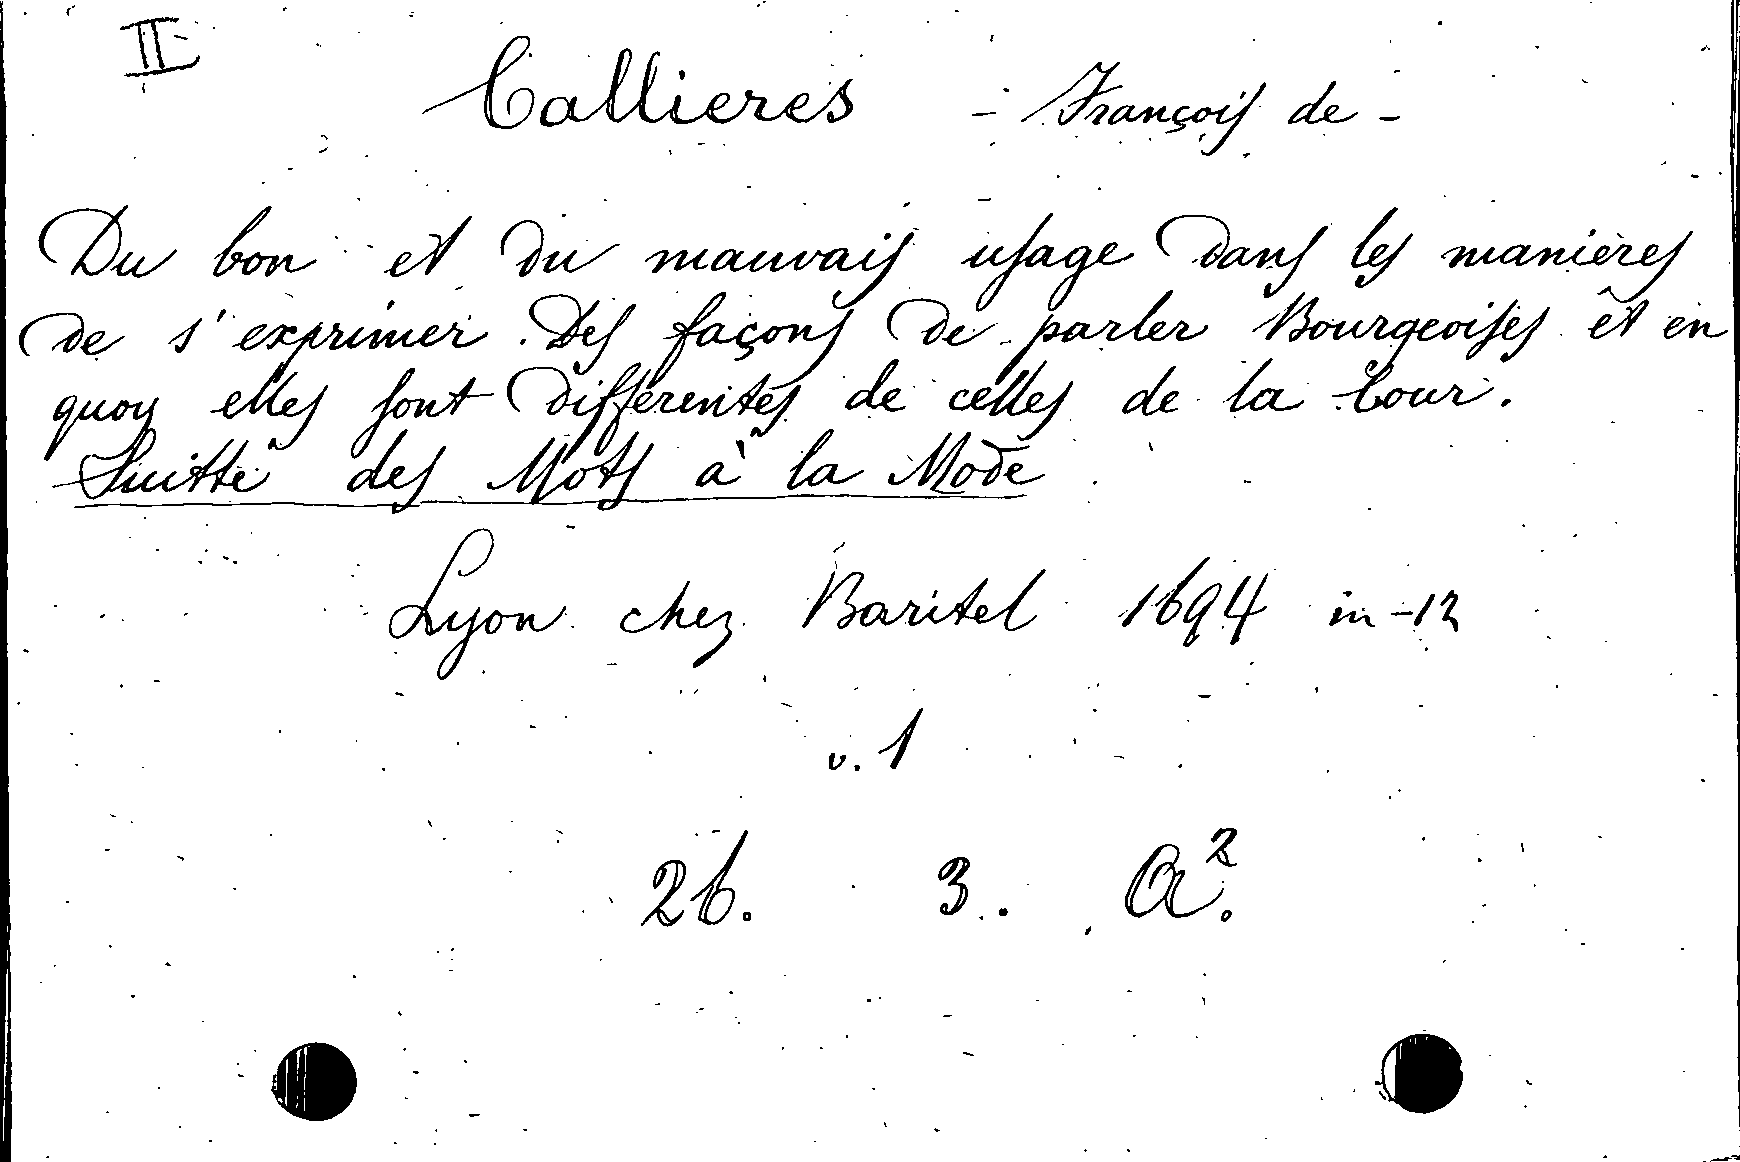 II
Callieres - François de -
Du bon et du mauvais usage dans les manières
de s'exprimer. Des façons de parler Bourgeoises et en
quoy elles sont differentes de celles de la Cour.
Suitte des Mots à la Mode
Lyon chez Baritel 1694 in-12
v. 1
26. 3. A².